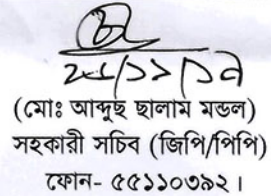 (মোঃ আব্দুছ ছালাম মন্ডল)
সহকারী সচিব (জিপি/পিপি)
ফোন- ৫৫১১০৩৯২।